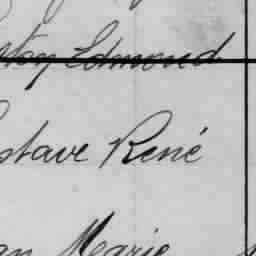 Edmond
stave René
Marie